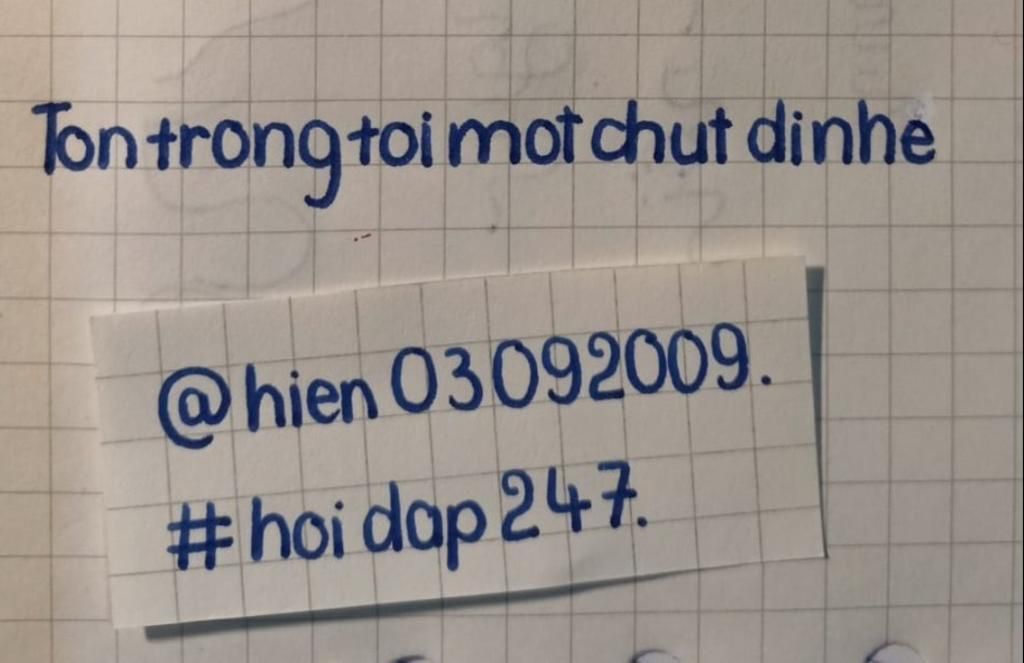 Ton trong toi mot chut di nhe
@hien03092009.
#hoi dap 247.